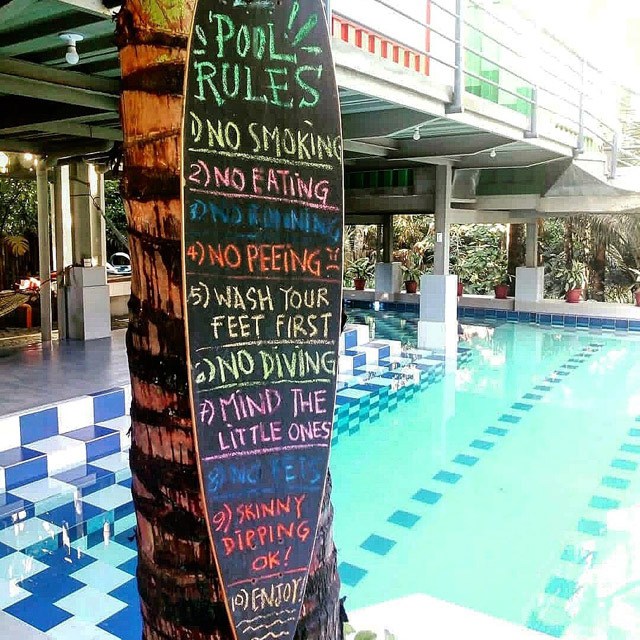 POOL
RULES
1) NO SMOKING
2) NO EATING
3) NO RUNNING
4) NO PEEING
5) WASH YOUR
FEET FIRST
6) NO DIVING
7) MIND THE
LITTLE ONES
8) NO PETS
9) SKINNY
DIPPING
OK!
10) ENJOY!